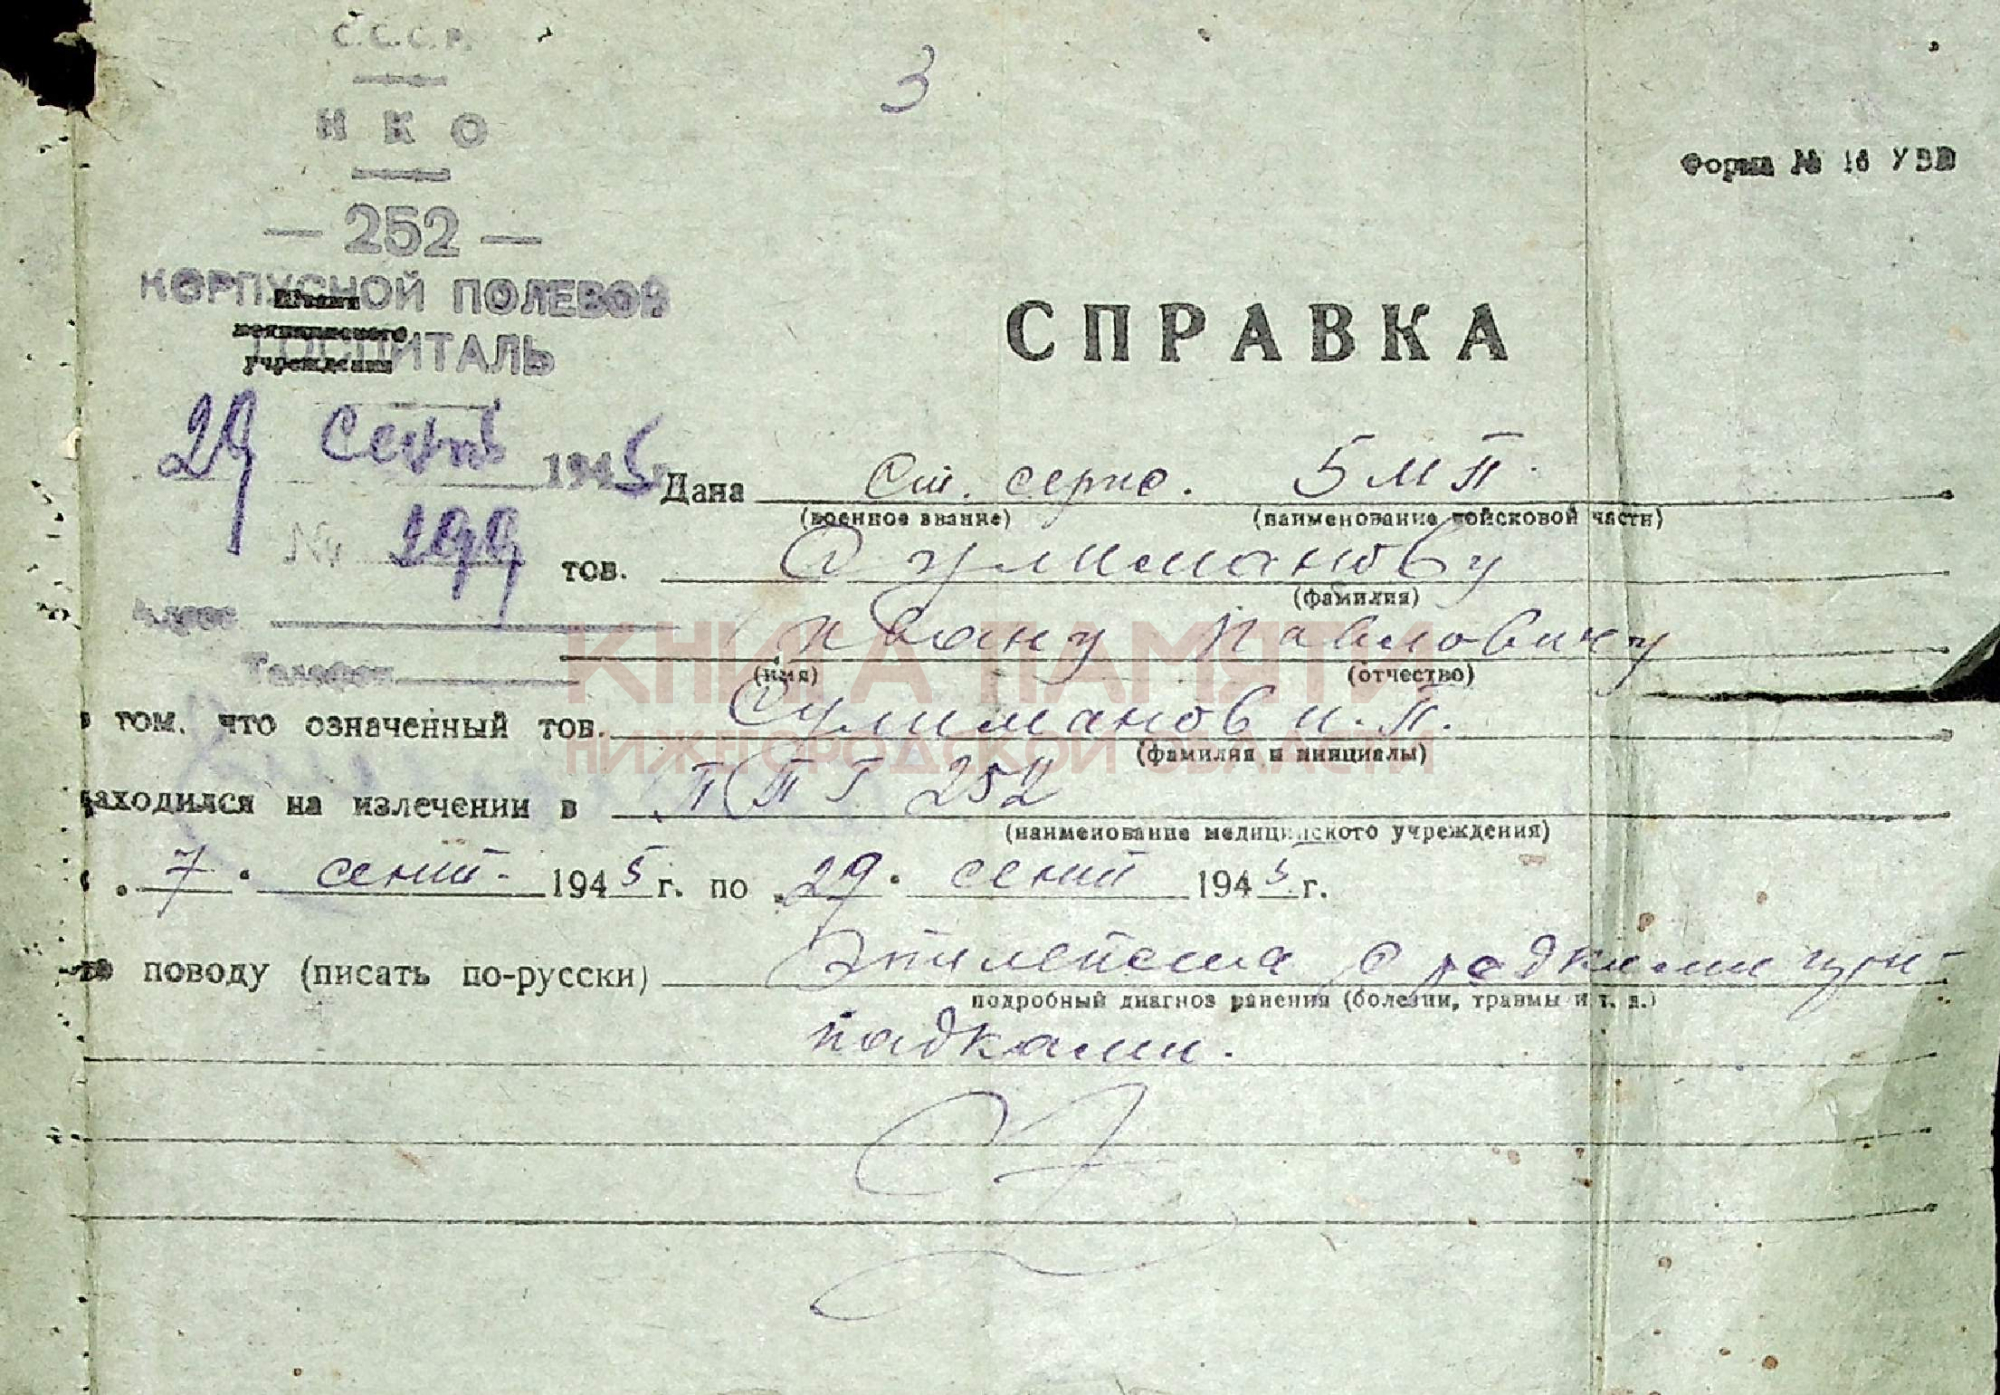 С.С.С.Р.
3
Н К О
Форма № 16 УВВ
— 252 —
КОРПУСНОЙ ПОЛЕВОЙ
Штамп
медицинского
ГОСПИТАЛЬ
учреждения
СПРАВКА
29 Сент 1945 г.
Дана Ст. серж. 5 МП.
(военное звание) (наименование войсковой части)
№ 299
тов. Сулиманову
(фамилия)
Адрес
Ивану Павловичу
(имя) (отчество)
Телефон
в том, что означенный тов. Сулиманов И.П.
(фамилия и инициалы)
КНИГА ПАМЯТИ
НИЖЕГОРОДСКОЙ ОБЛАСТИ
находился на излечении в ППГ 252
(наименование медицинского учреждения)
с 7 сент. 1945 г. по 29 сент 1945 г.
по поводу (писать по-русски) Эпилепсия с редкими при-
подробный диагноз ранения (болезни, травмы и т. д.)
падками.